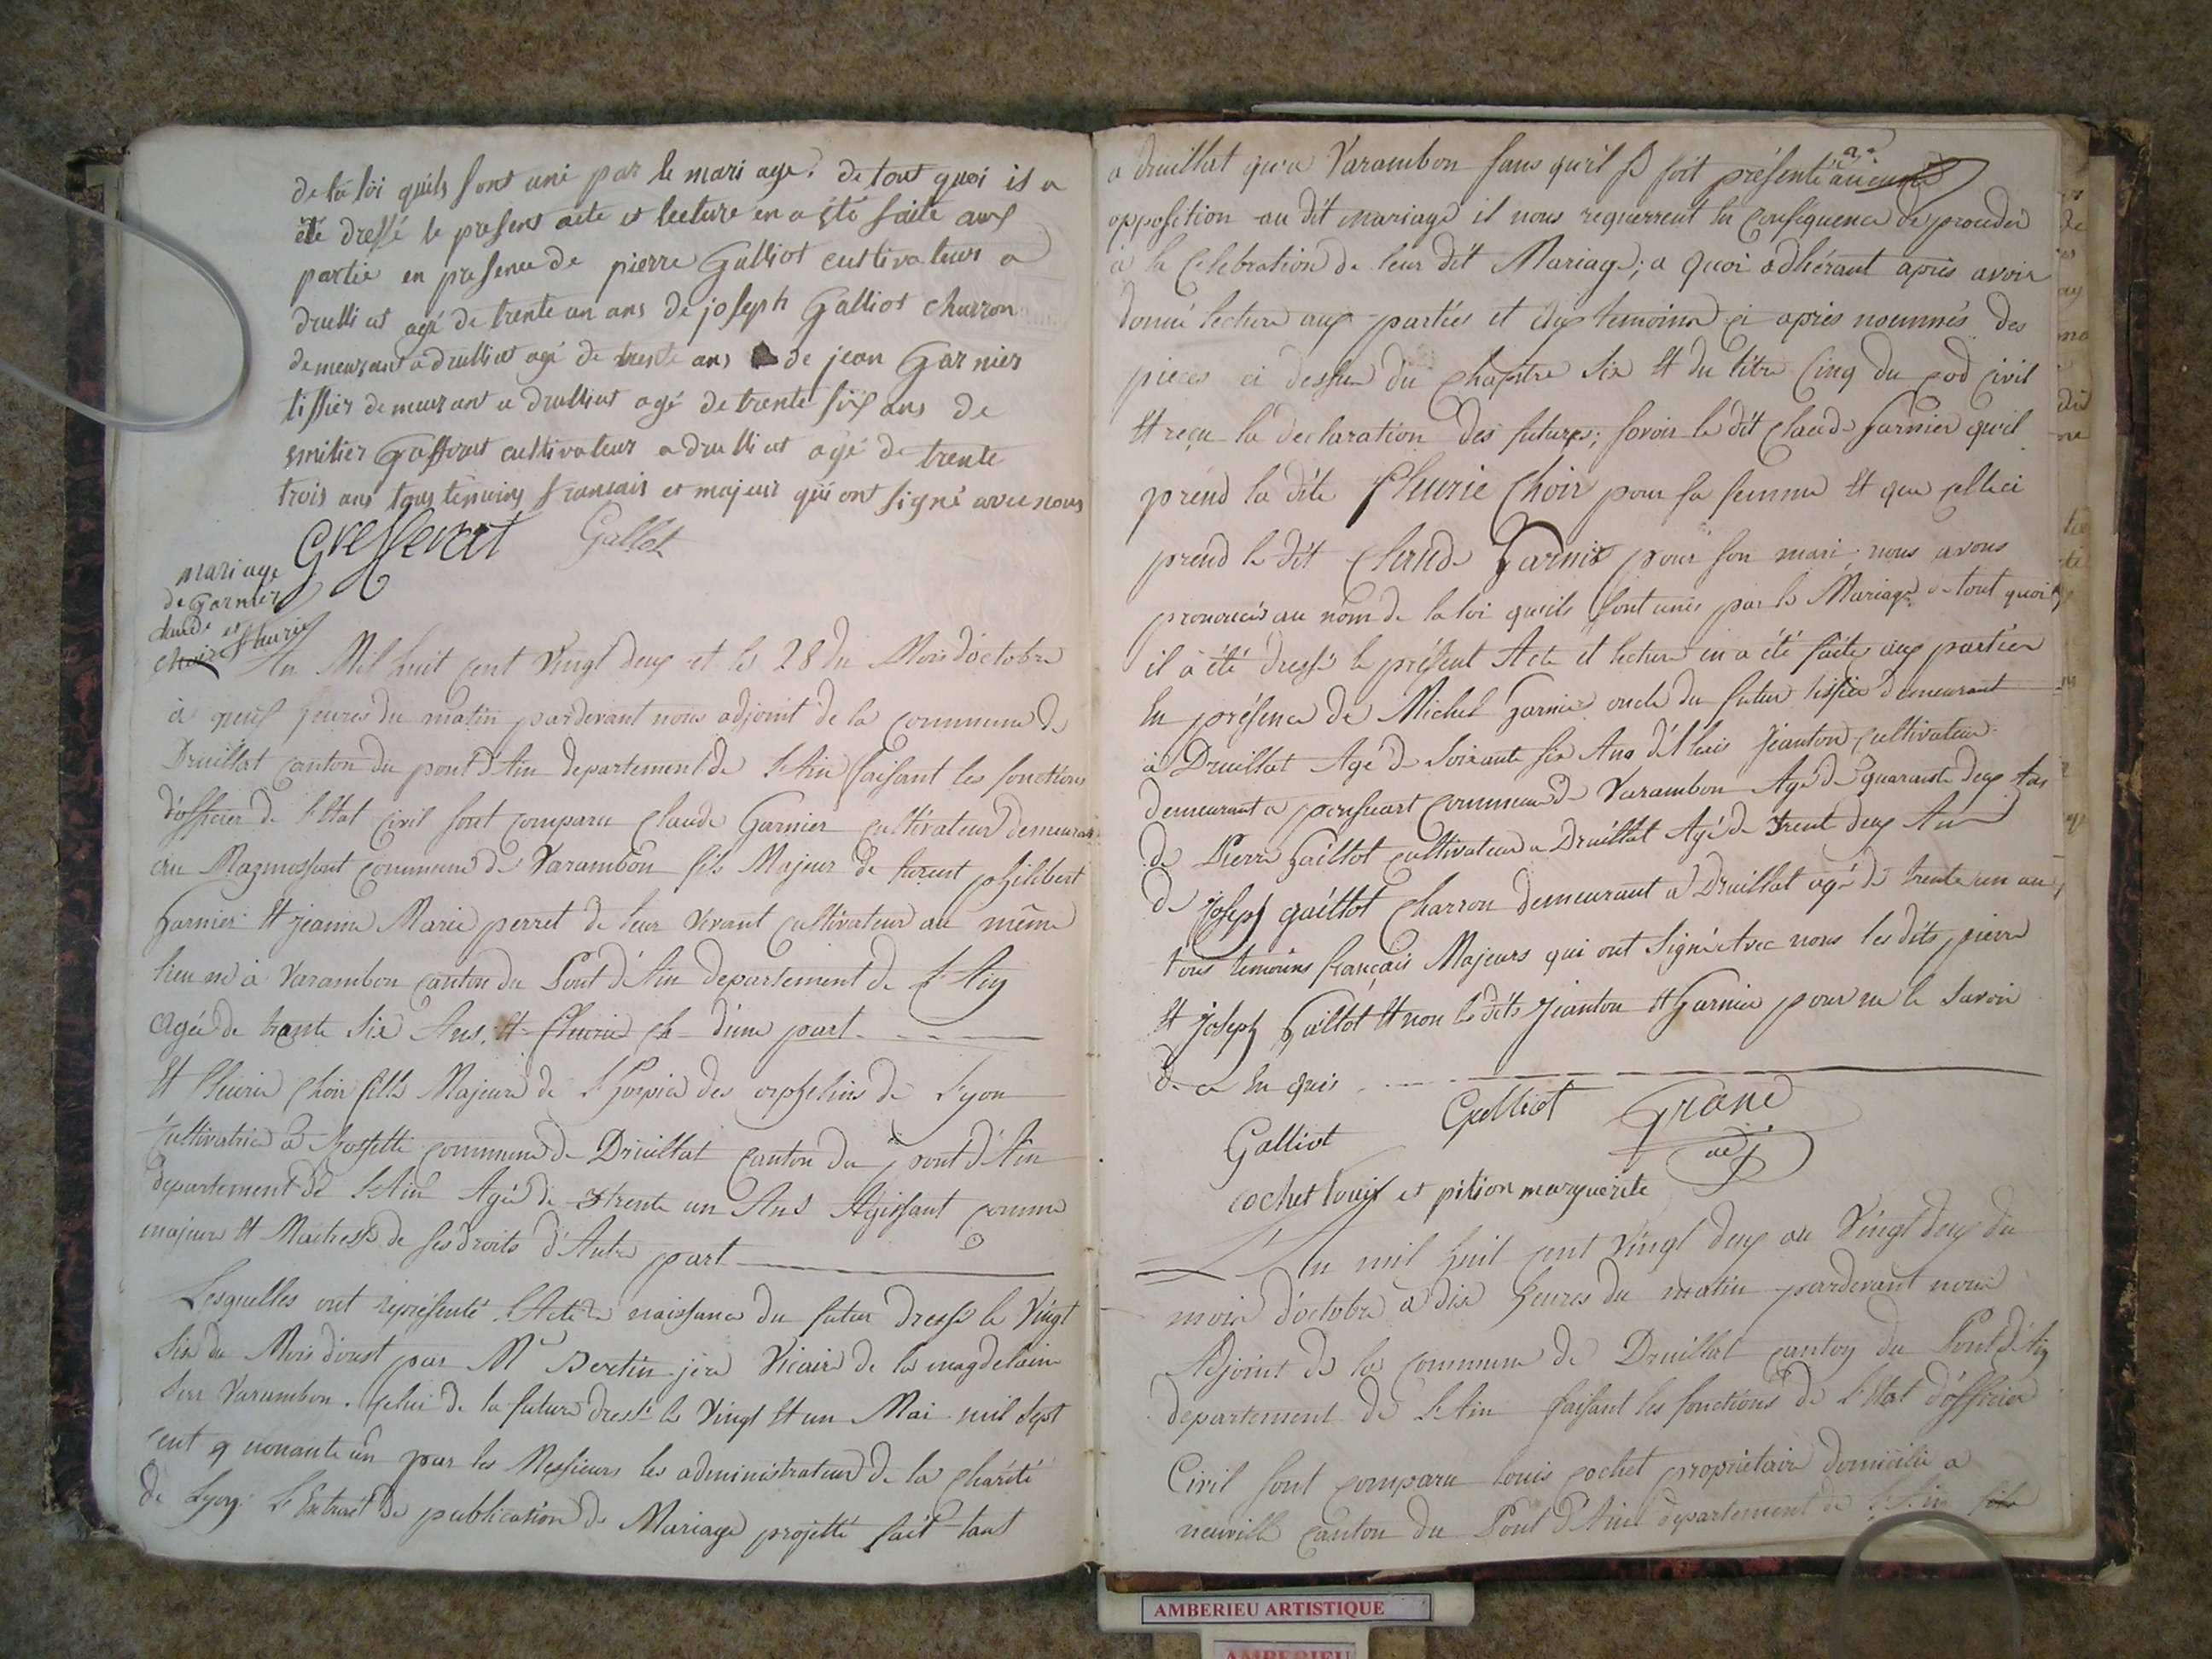 de la loi quils sont uni par le mari age. de tout quoi il a
été dressé le present acte et lecture en a été faite aux
partie en presence de pierre Galliot cultivateur a
drulliat agé de trente un ans de joseph Galliot charron
demeurant a drulliat agé de trente ans de jean Garnier
tissier demeurant a drulliat agé de trente six ans de
cultivateur a drulliat agé de trente
trois ans tous temoins francais et majeur qui ont signé avec nous
Galliot
mariage
de Garnier
claude et
fleurie
choir
An Mil huit cent Vingt deux et le 28 du Mois d'octobre
à neuf heures du matin pardevant nous adjoint de la commune de
Druillat canton du pont d'Ain departement de L'Ain faisant les fonctions
d'officier de L'Etat Civil sont comparu Claude Garnier cultivateur demeurant
commune de Varambon fils Majeur de furent philibert
Garnier Et jeanne Marie perret de leur vivant cultivateur au même
lieu né à Varambon canton du Pont d'Ain departement de L'Ain
agée de trante Six Ans. Et fleurie Ch d'une part
Et fleurie Choir fille Majeure de L'hospice des orphelins de Lyon
cultivatrice à Rossette commune de Druillat canton du pont d'Ain
departement de L'Ain Agée de trente un Ans Agissant comme
majeure Et Maitresse de ses droits d'Autre part
Lesquelles ont représenté L'Acte de naissance du futur dressé le Vingt
Six du Mois d'oust par Mr Vicaire de la magdelaine
Sur Varambon. Celui de la future dressé le Vingt Et un Mai mil Sept
cent nonante un par les Messieurs les administrateurs de la Charité
de Lyon. L'Extrait de publication de Mariage projetté fait tant
a druillat qu'a Varambon sans qu'il se soit présenté aucune
opposition au dit mariage il nous requerrent En Consequence de proceder
à la Célébration de leur dit Mariage; a quoi adhérant après avoir
donné lecture aux parties et aux temoins ci après nommés des
pieces ci dessus du chapitre Six Et du titre Cinq du cod civil
Et reçu la declaration des futures; savoir le dit Claude Garnier qu'il
prend la dite fleurie Choir pour sa femme Et que celleci
prend le dit Claude Garnier pour son mari; nous avons
prononcés au nom de la loi qu'ils sont unis par le Mariage de tout quoi
il à été dressé le présent Acte et lecture en a été faite aux parties
En présence de Michel Garnier oncle du futur tissier demeurant
à Druillat Agé de Soixante six Ans Jeanton cultivateur
demeurant a commune de Varambon Agé de quarante deux Ans
de Pierre Gaillot cultivateur a Druillat Agé de trente deux Ans
de Joseph Gaillot Charron demeurant a Druillat agé de trente un ans
tous temoins français Majeurs qui ont Signé Avec nous les dits pierre
Et Joseph Gaillot Et non les dits Jeanton Et Garnier pour ne le Savoir
de ce En quis
Galliot Galliot Grané
adj
cochet louis et pition marguerite
L'An mil huit cent Vingt deux au Vingt deux du
mois d'octobre à dix heures du matin pardevant nous
Adjoint de la commune de Druillat canton du Pont d'Ain
departement de L'Ain faisant les fonctions de L'Etat d'officier
Civil sont comparu louis cochet propriétaire domicilié a
neuville canton du Pont d'Ain departement de L'Ain fils
AMBERIEU ARTISTIQUE
AMBERIEU